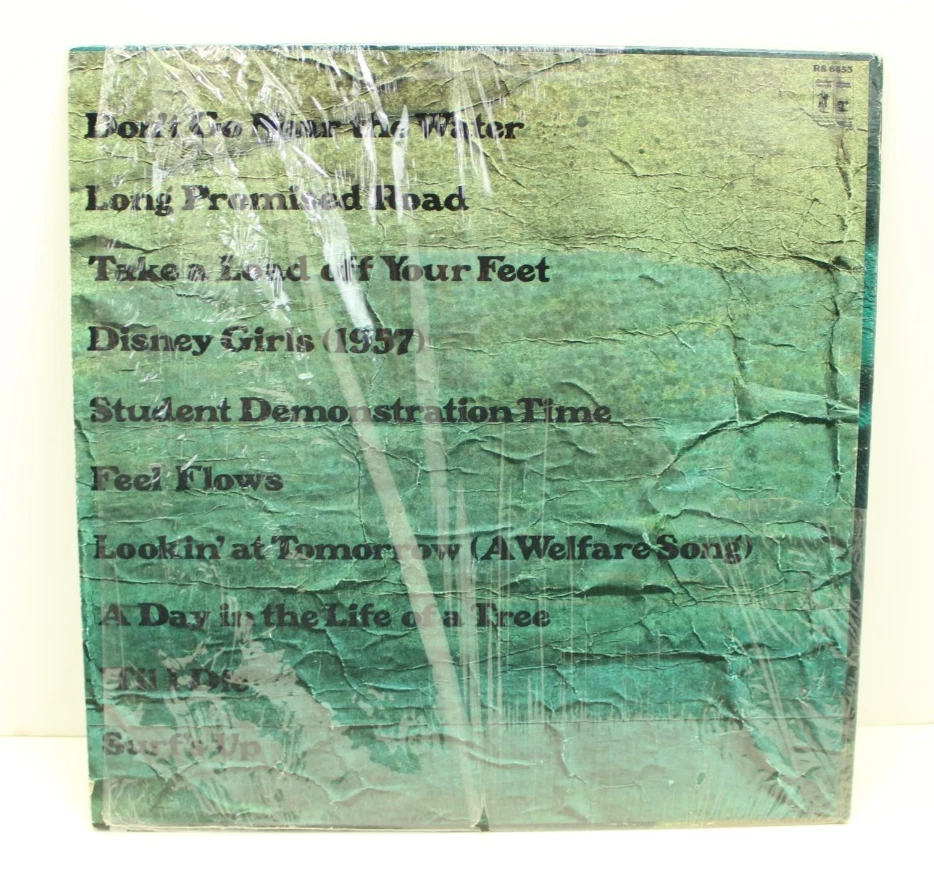 RS 6453
Don't Go Near the Water
Long Promised Road
Take a Load off Your Feet
Disney Girls (1957)
Student Demonstration Time
Feel Flows
Lookin' at Tomorrow (A Welfare Song)
A Day in the Life of a Tree
'Til I Die
Surf's Up